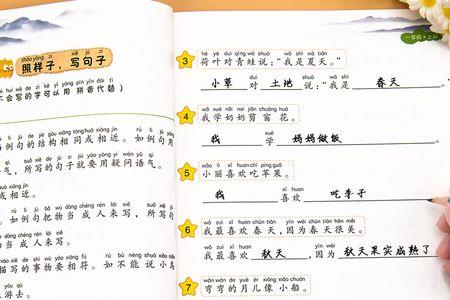 一年级·上册
zhào yàng zi xiě jù zi
照样子，写句子
不会写的字可以用 拼音代替）
例句的结构相同或相近。如例句用
气，所写的句子就要用疑问语气。
相近。
如例句把物当 成人来写，所写的
当 成人来写。
描写的事物要相符。如不能说小鸟
3
hé yè duì qīng wā shuō wǒ shì xià tiān
荷叶对青蛙说：“我是夏天。”
小草 对 土地 说：“我是 春天 ”
4
wǒ xué nǎi nai jiǎn chuāng huā
我学奶奶剪窗花。
我 学 妈妈做饭 。
5
xiǎo lì xǐ huan chī píng guǒ
小丽喜欢吃苹果。
我 喜欢 吃李子
6
wǒ zuì xǐ huan chūn tiān yīn wèi chūn tiān hěn měi
我最喜欢春天，因为春天很美。
我最喜欢 秋天 ，因为 秋天果实成熟了
7
wān wān de yuè er xiàng xiǎo chuán
弯弯的月儿像小船。